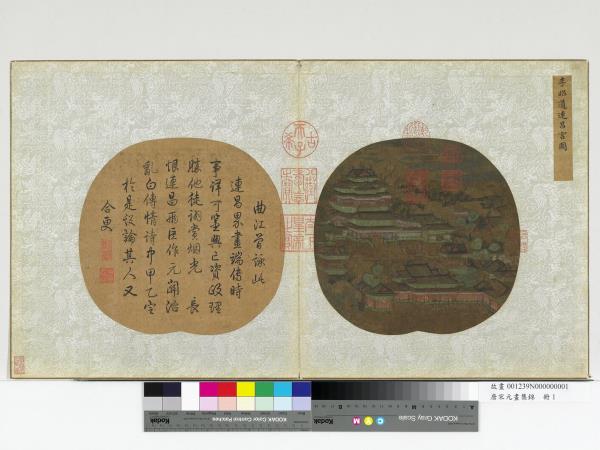 李昭道連昌宮圖
曲江曾詠此
連昌界畫端傳時
事詳可鑒興亡資政理
勝他徒詡常烟光 長
恨連昌兩巨作元開治
亂白傳情詩中甲乙定
於是後論其人又
合更
古稀天子
故畫 001239N000000001
唐宋元畫集錦 冊 1
Kodak Color Control Patches
Kodak Gray Scale
C Y M